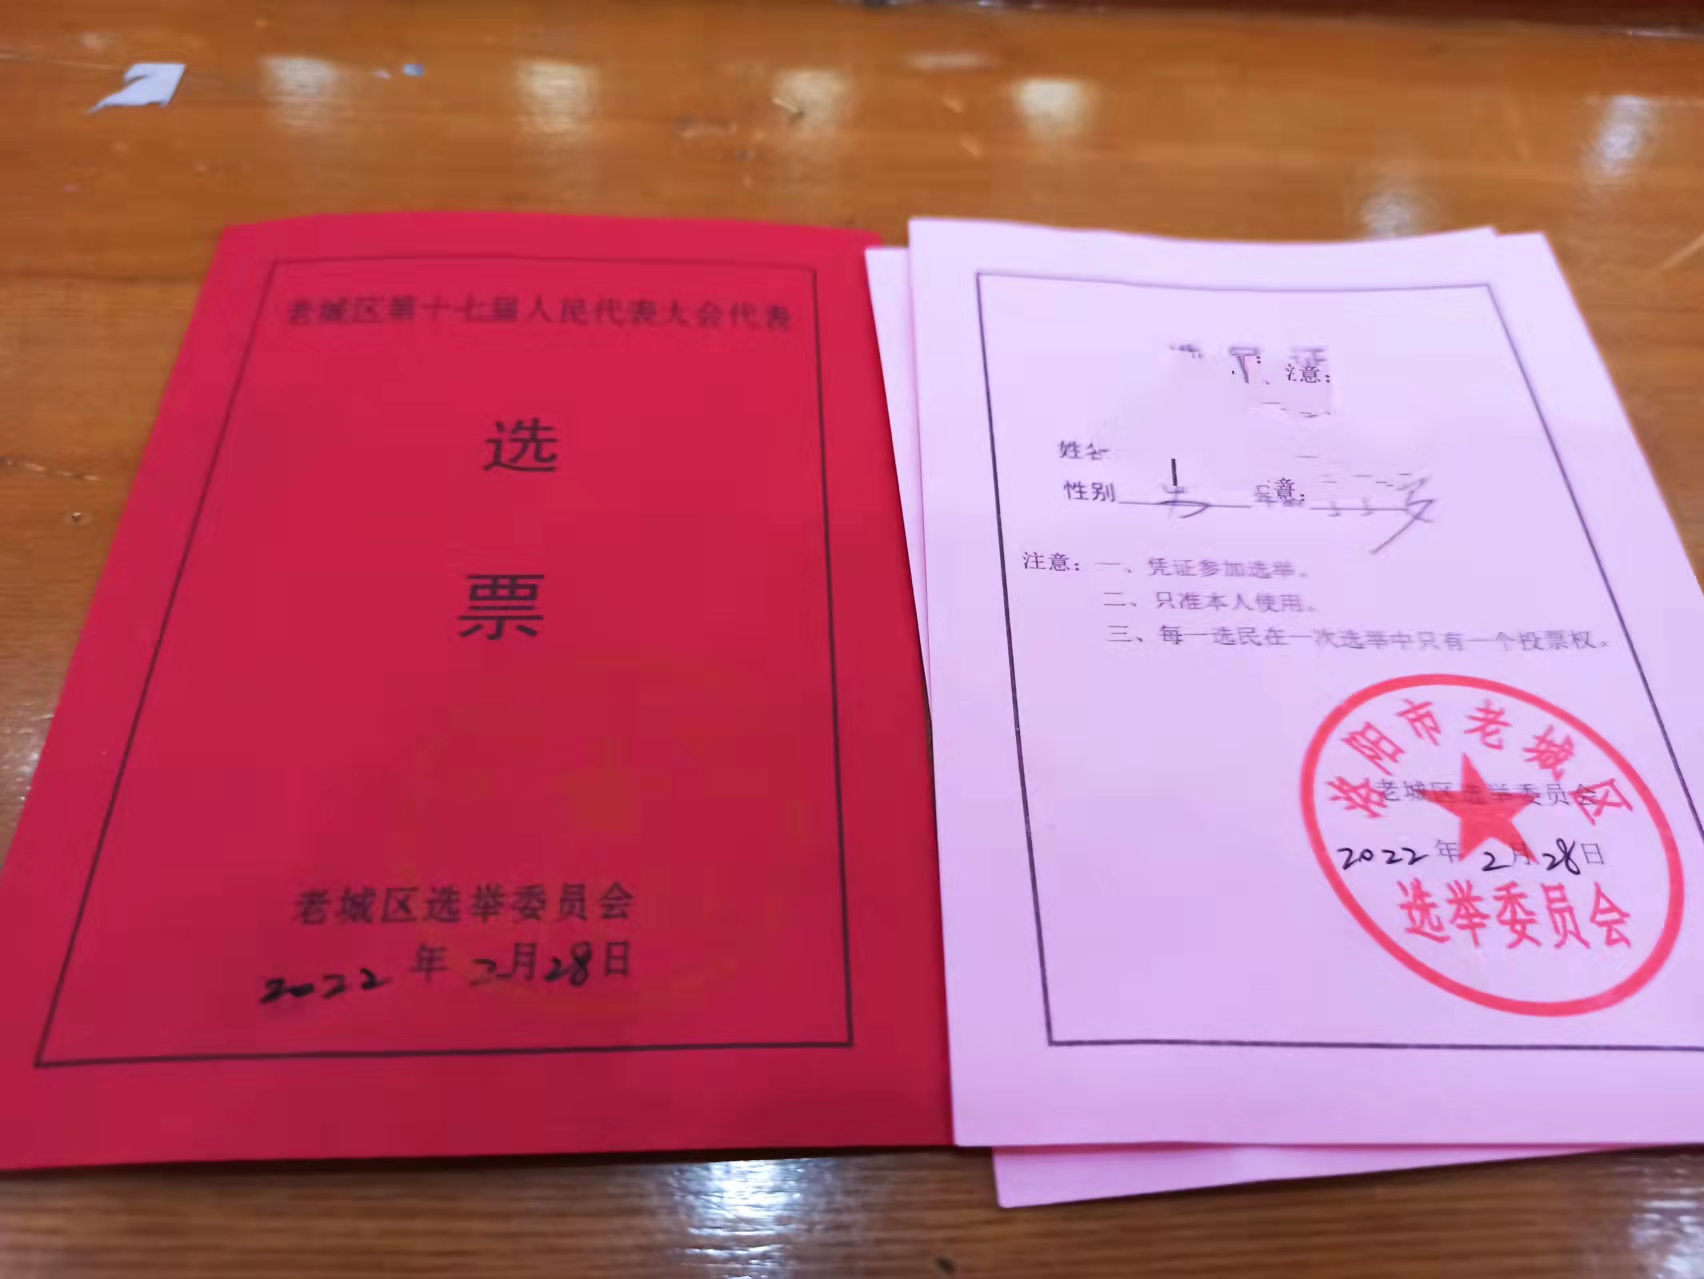 老城区第十七届人民代表大会代表
选
票
老城区选举委员会
2022年2月28日
证
、注意：
姓名
性别
意：
注意：一、凭证参加选举。
二、只准本人使用。
三、每一选民在一次选举中只有一个投票权。
洛阳市老城区
老城区选举委员会
2022年2月28日
选举委员会